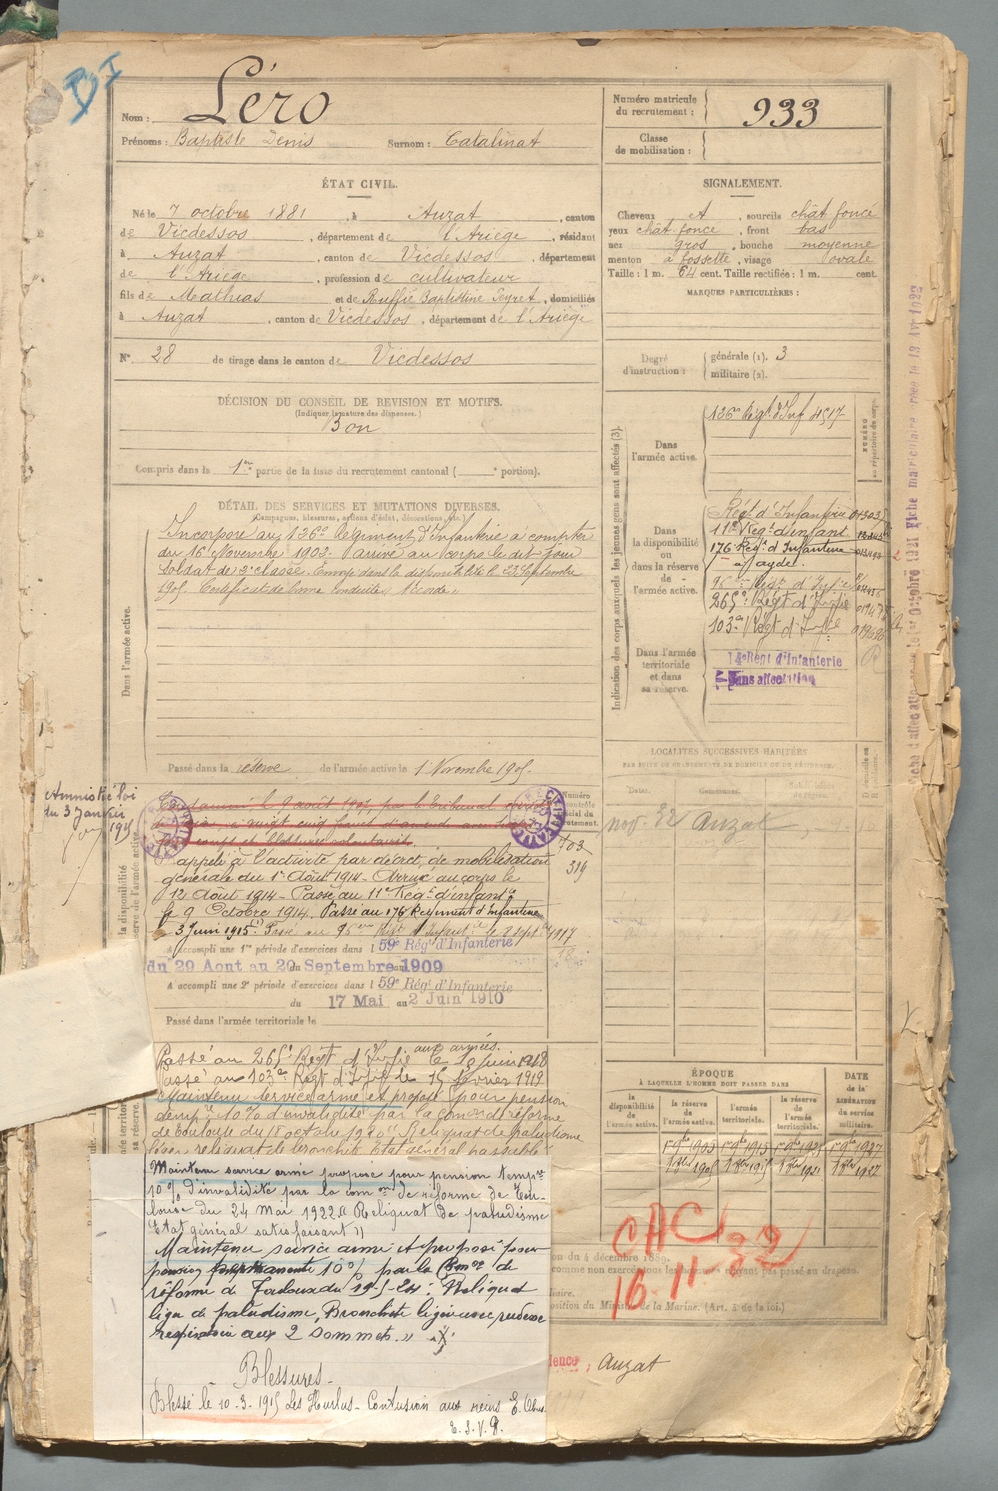 BI
Nom : Léro
Prénoms : Baptiste Denis Surnom : Catalinat
Numéro matricule du recrutement : 933
Classe de mobilisation :
ÉTAT CIVIL.
Né le 7 octobre 1881, à Auzat, canton
de Vicdessos, département de l'Ariège, résidant
à Auzat, canton de Vicdessos, département
de l'Ariège, profession de cultivateur
fils de Mathias et de Rouffié Baptistine Peyret, domiciliés
à Auzat, canton de Vicdessos, département de l'Ariège
N° 28 de tirage dans le canton de Vicdessos
SIGNALEMENT.
Cheveux A, sourcils chât foncé
yeux chât foncé, front bas
nez gros, bouche moyenne
menton à fossette, visage ovale
Taille : 1 m. 64 cent. Taille rectifiée : 1 m. cent.
MARQUES PARTICULIÈRES :
Degré d'instruction : générale (1). 3
militaire (2).
DÉCISION DU CONSEIL DE REVISION ET MOTIFS.
(Indiquer la nature des dispenses.)
Bon
Compris dans la 1re partie de la liste du recrutement cantonal ( portion).
DÉTAIL DES SERVICES ET MUTATIONS DIVERSES.
(Campagnes, blessures, actions d'éclat, décorations, etc.)
Dans l'armée active.
Incorporé au 136e Régiment d'Infanterie à compter
du 16 Novembre 1903. Arrivé au corps le dit jour
soldat de 2e classe. Envoyé dans la disponibilité le 23 Septembre
1905. Certificat de bonne conduite "Accordé"
Passé dans la réserve de l'armée active le 1 Novembre 1905
Indication des corps auxquels les jeunes gens sont affectés (3).
Dans l'armée active.
136e Régt d'Inf 4517
NUMÉRO au répertoire du corps.
Dans la disponibilité ou dans la réserve de l'armée active.
Régt d'Infanterie
11e Régt d'infant
176 Régt d'Infanterie
265e Régt d'Infie
103e Régt d'Infie
Dans l'armée territoriale et dans sa réserve.
14e Régt d'Infanterie
Sans affectation
LOCALITÉS SUCCESSIVES HABITÉES
PAR SUITE DE CHANGEMENTS DE DOMICILE OU DE RÉSIDENCE.
Dates. Communes.
nov. 32 Auzat
Amnistié loi
du 3 Janvier
Condamné le 9 août par le tribunal
à vingt cinq francs d'amende
coups et blessures volontaires
703
319
appelé à l'activité par décret de mobilisation
générale du 1er Août 1914. Arrivé au corps le
12 Août 1914. Passé au 11e Régt d'infantie
le 9 Octobre 1914. Passé au 176 Régiment d'Infanterie
3 Juin 1915.
A accompli une 1re période d'exercices dans l 59e Rég. d'Infanterie
du 29 Aout au 20 Septembre 1909
A accompli une 2e période d'exercices dans l 59e Rég. d'Infanterie
du 17 Mai au 2 Juin 1910
Passé dans l'armée territoriale le
Passé au 265e Régt d'Infie aux armées. le 8 Juin 1918
Passé au 103e Régt d'Infie le 15 février 1919
Maintenu service armé et proposé pour pension
10% d'invalidité par la comon de réforme
de Toulouse du 18 octobre 1920 "Reliquat de paludisme
léger reliquat de bronchite. Etat général passable"
Maintenu service armé proposé pour pension tempre
10% d'invalidité par la comon de réforme de Tou-
louse du 24 Mai 1922 "Reliquat de paludisme
Etat général satisfaisant"
Maintenu service armé et proposé pour
pension permanente 10% par la Comon de
réforme de Toulouse du 19-5-24 : "Reliquat
léger de paludisme, Bronchite légère avec rudesse
respiratoire aux 2 sommets."
Blessures.
Blessé le 10-3-1915 Les Hurlus. Contusion aux reins E. Obus.
E.S.V.P.
ÉPOQUE
À LAQUELLE L'HOMME DOIT PASSER DANS
la disponibilité de l'armée active. la réserve de l'armée active. l'armée territoriale. la réserve de l'armée territoriale.
DATE de la LIBÉRATION du service militaire.
1er 9bre 1905 1er 9bre 1915 1er 9bre 1921 1er 9bre 1927
CAC
16-11-32
du 4 décembre 1889.
(Art. de la loi.)
Auzat
Fiche matriculaire